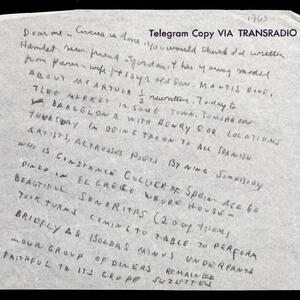 1963
Telegram Copy VIA TRANSRADIO
Dear one - Circus is done. You would think I'd written
Hamlet. New friend - Jordan + his young model
from Paris - wife + 15 yr old son. MANTIS DONE,
ABOUT McARTHUR 1/2 rewritten. Today to
FLEE MARKET IN SOME TOWN. TOMORROW
BARCELONA WITH HENRY FOR LOCATIONS
THURSDAY IN BEING TAKEN TO ALL SPANISH
ARTISTS, ACTRESSES POETS BY NINA SOMEBODY
WHO IS CONSTANCE COLLIER OF SPAIN - AGE 60
DINED IN EL GRECO WHORE HOUSE -
BEAUTIFUL SENORITAS (20 of them)
TOOK TURNS COMING TO TABLE TO PERFORM
BRIEFLY AS ISOLDAS MINUS UNDERPANTS
- OUR GROUP OF DINERS REMAINED
FAITHFUL TO ITS CREPE SUZETTES